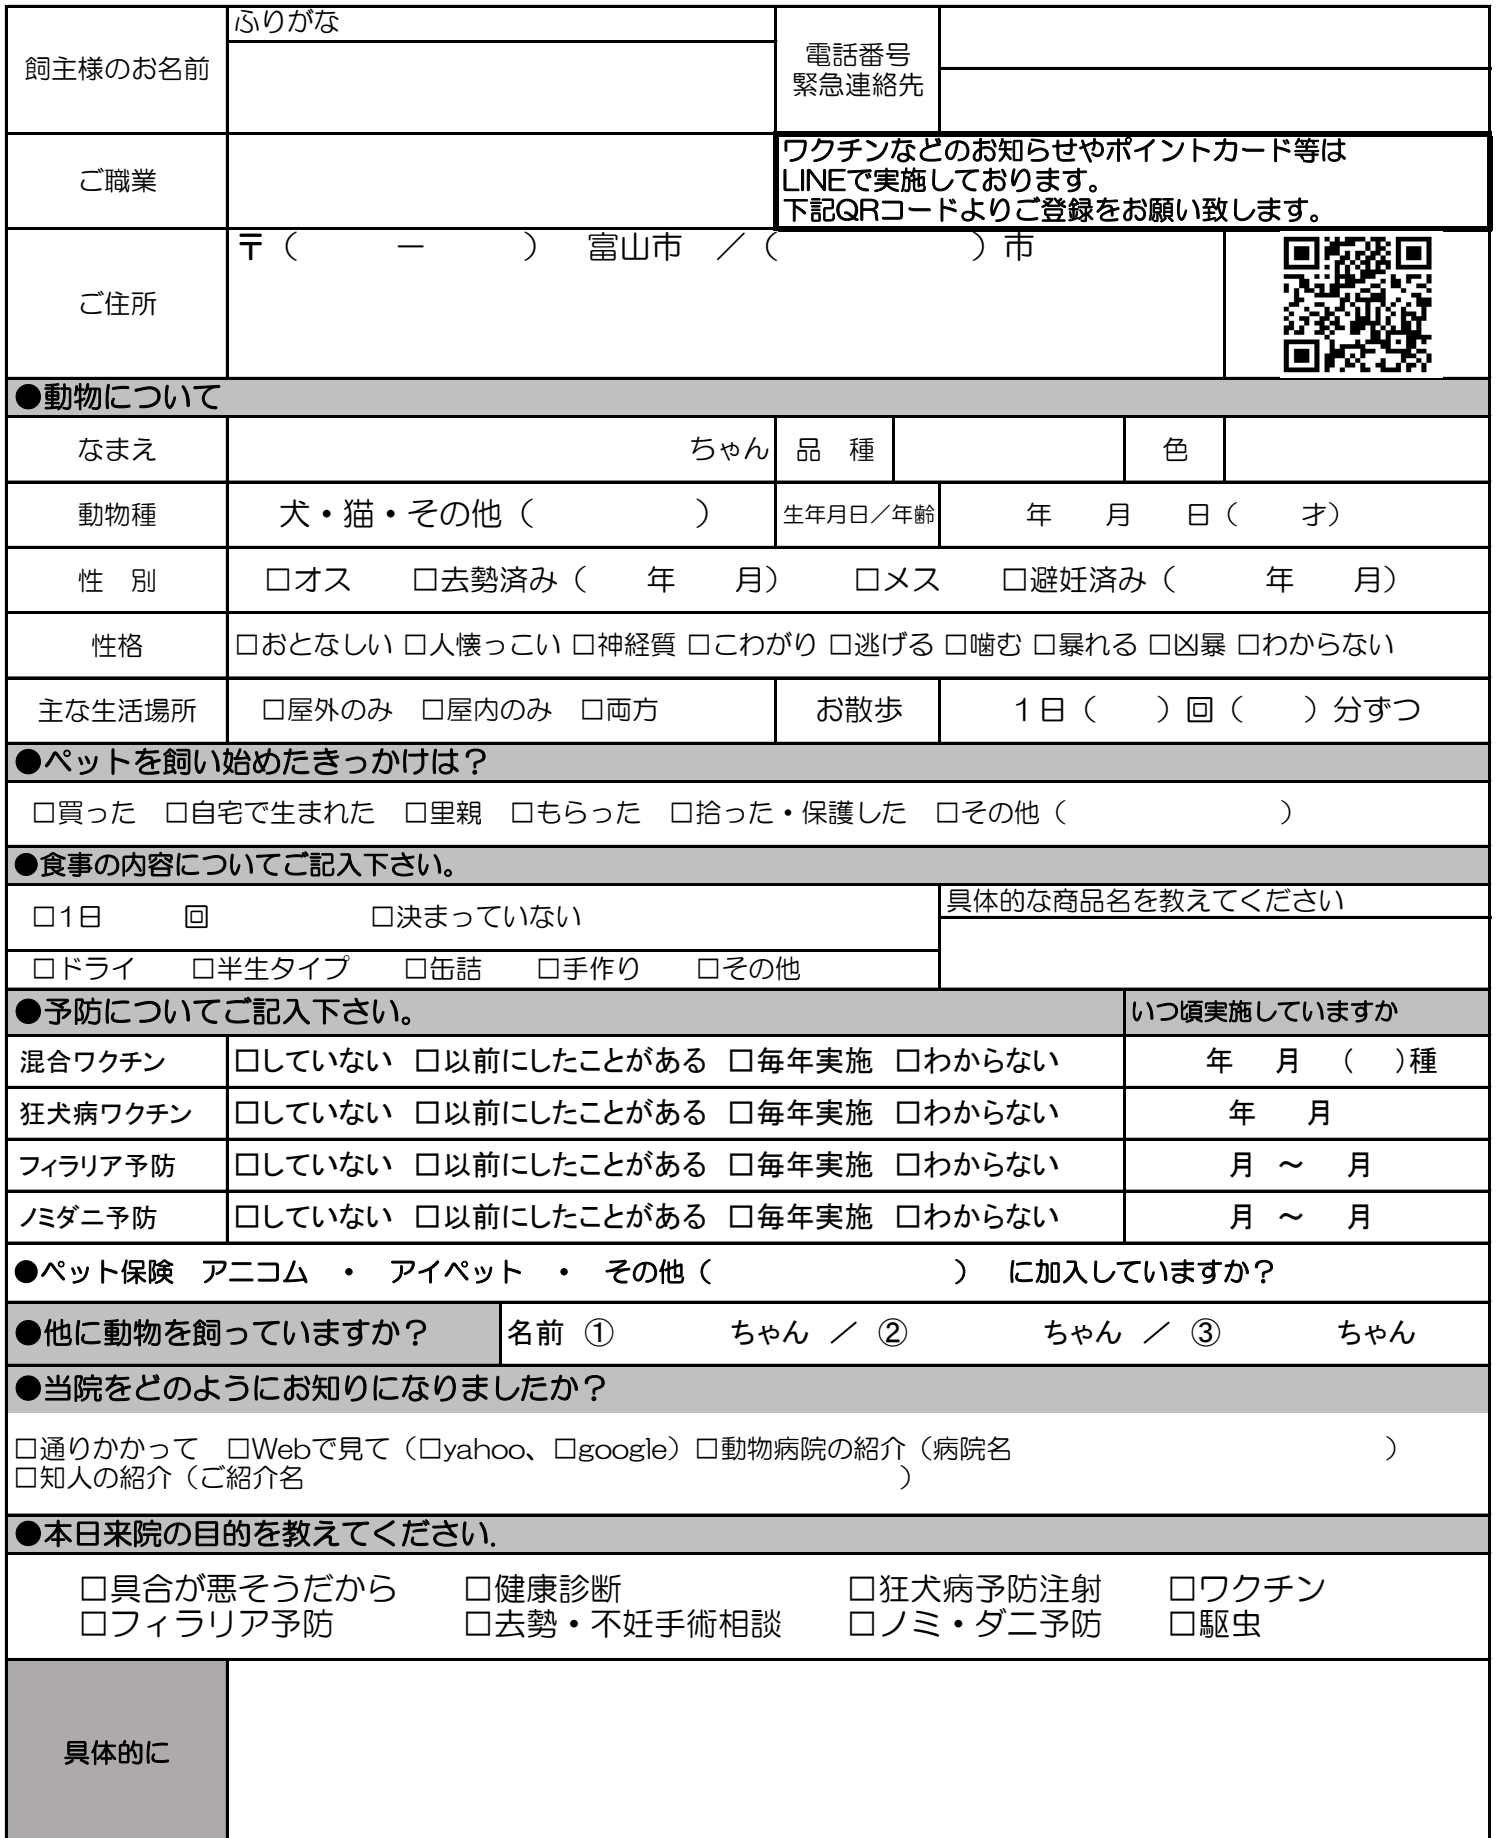 ふりがな
飼主様のお名前
電話番号
緊急連絡先
ご職業
ワクチンなどのお知らせやポイントカード等は
LINEで実施しております。
下記QRコードよりご登録をお願い致します。
ご住所
〒（　　　－　　　）　富山市　／（　　　　　　）市
●動物について
なまえ　ちゃん　品　種　色
動物種　犬・猫・その他（　　　　　）　生年月日／年齢　年　月　日（　　才）
性　別　□オス　□去勢済み（　　年　　月）　□メス　□避妊済み（　　　年　　月）
性格　□おとなしい □人懐っこい □神経質 □こわがり □逃げる □噛む □暴れる □凶暴 □わからない
主な生活場所　□屋外のみ　□屋内のみ　□両方　お散歩　1日（　　）回（　　）分ずつ
●ペットを飼い始めたきっかけは？
□買った　□自宅で生まれた　□里親　□もらった　□拾った・保護した　□その他（　　　　　　　　）
●食事の内容についてご記入下さい。
□1日　　　回　　　　　　□決まっていない
具体的な商品名を教えてください
□ドライ　□半生タイプ　□缶詰　□手作り　□その他
●予防についてご記入下さい。　いつ頃実施していますか
混合ワクチン　□していない　□以前にしたことがある　□毎年実施　□わからない　年　月　（　）種
狂犬病ワクチン　□していない　□以前にしたことがある　□毎年実施　□わからない　年　月
フィラリア予防　□していない　□以前にしたことがある　□毎年実施　□わからない　月　～　月
ノミダニ予防　□していない　□以前にしたことがある　□毎年実施　□わからない　月　～　月
●ペット保険　アニコム　・　アイペット　・　その他（　　　　　　　　　）　に加入していますか？
●他に動物を飼っていますか？　名前　①　　　　ちゃん　／　②　　　　　ちゃん　／　③　　　　ちゃん
●当院をどのようにお知りになりましたか？
□通りかかって　□Webで見て（□yahoo、□google）□動物病院の紹介（病院名　　　　　　　　　　　　　　）
□知人の紹介（ご紹介名　　　　　　　　　　　　　　　　　　　　　　）
●本日来院の目的を教えてください.
□具合が悪そうだから　□健康診断　□狂犬病予防注射　□ワクチン
□フィラリア予防　□去勢・不妊手術相談　□ノミ・ダニ予防　□駆虫
具体的に